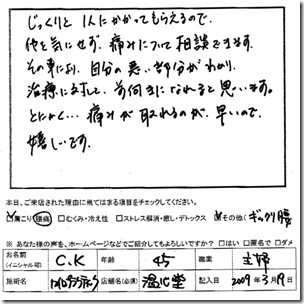 じっくりと 1人にかかってもらえるので、
他を気にせず、痛みについて相談できます。
その事により、自分の悪い部分がわかり、
治療に対して、前向きになれると思います。
とにかく… 痛みが取れるのが、早いので、
嬉しいです。
本日、ご来店された理由に当てはまる項目をチェックしてください。
☑肩こり 腰痛 □むくみ・冷え性 □ストレス解消・癒し・デトックス ☑その他（ギックリ腰
※ あなた様の声を、ホームページなどでご紹介してもよろしいですか？ □はい □匿名で □ダメ
お名前（イニシャル可） C.K 年齢 45 職業 主婦
施術名 店舗名(必須) 温心堂 記入日 2009年3月19日